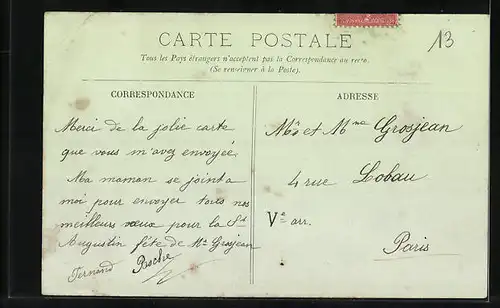 CARTE POSTALE
Tous les Pays étrangers n'acceptent pas la Correspondance au recto.
(Se renseigner à la Poste).
13
CORRESPONDANCE
Merci de la jolie carte
que vous m'avez envoyée.
Ma maman se joint à
moi pour envoyer tous nos
meilleurs vœux pour la St
Augustin fête de Mr Grosjean
Fernand Roche
ADRESSE
Mr et Mme Grosjean
4 rue Lobau
Ve arr.
Paris